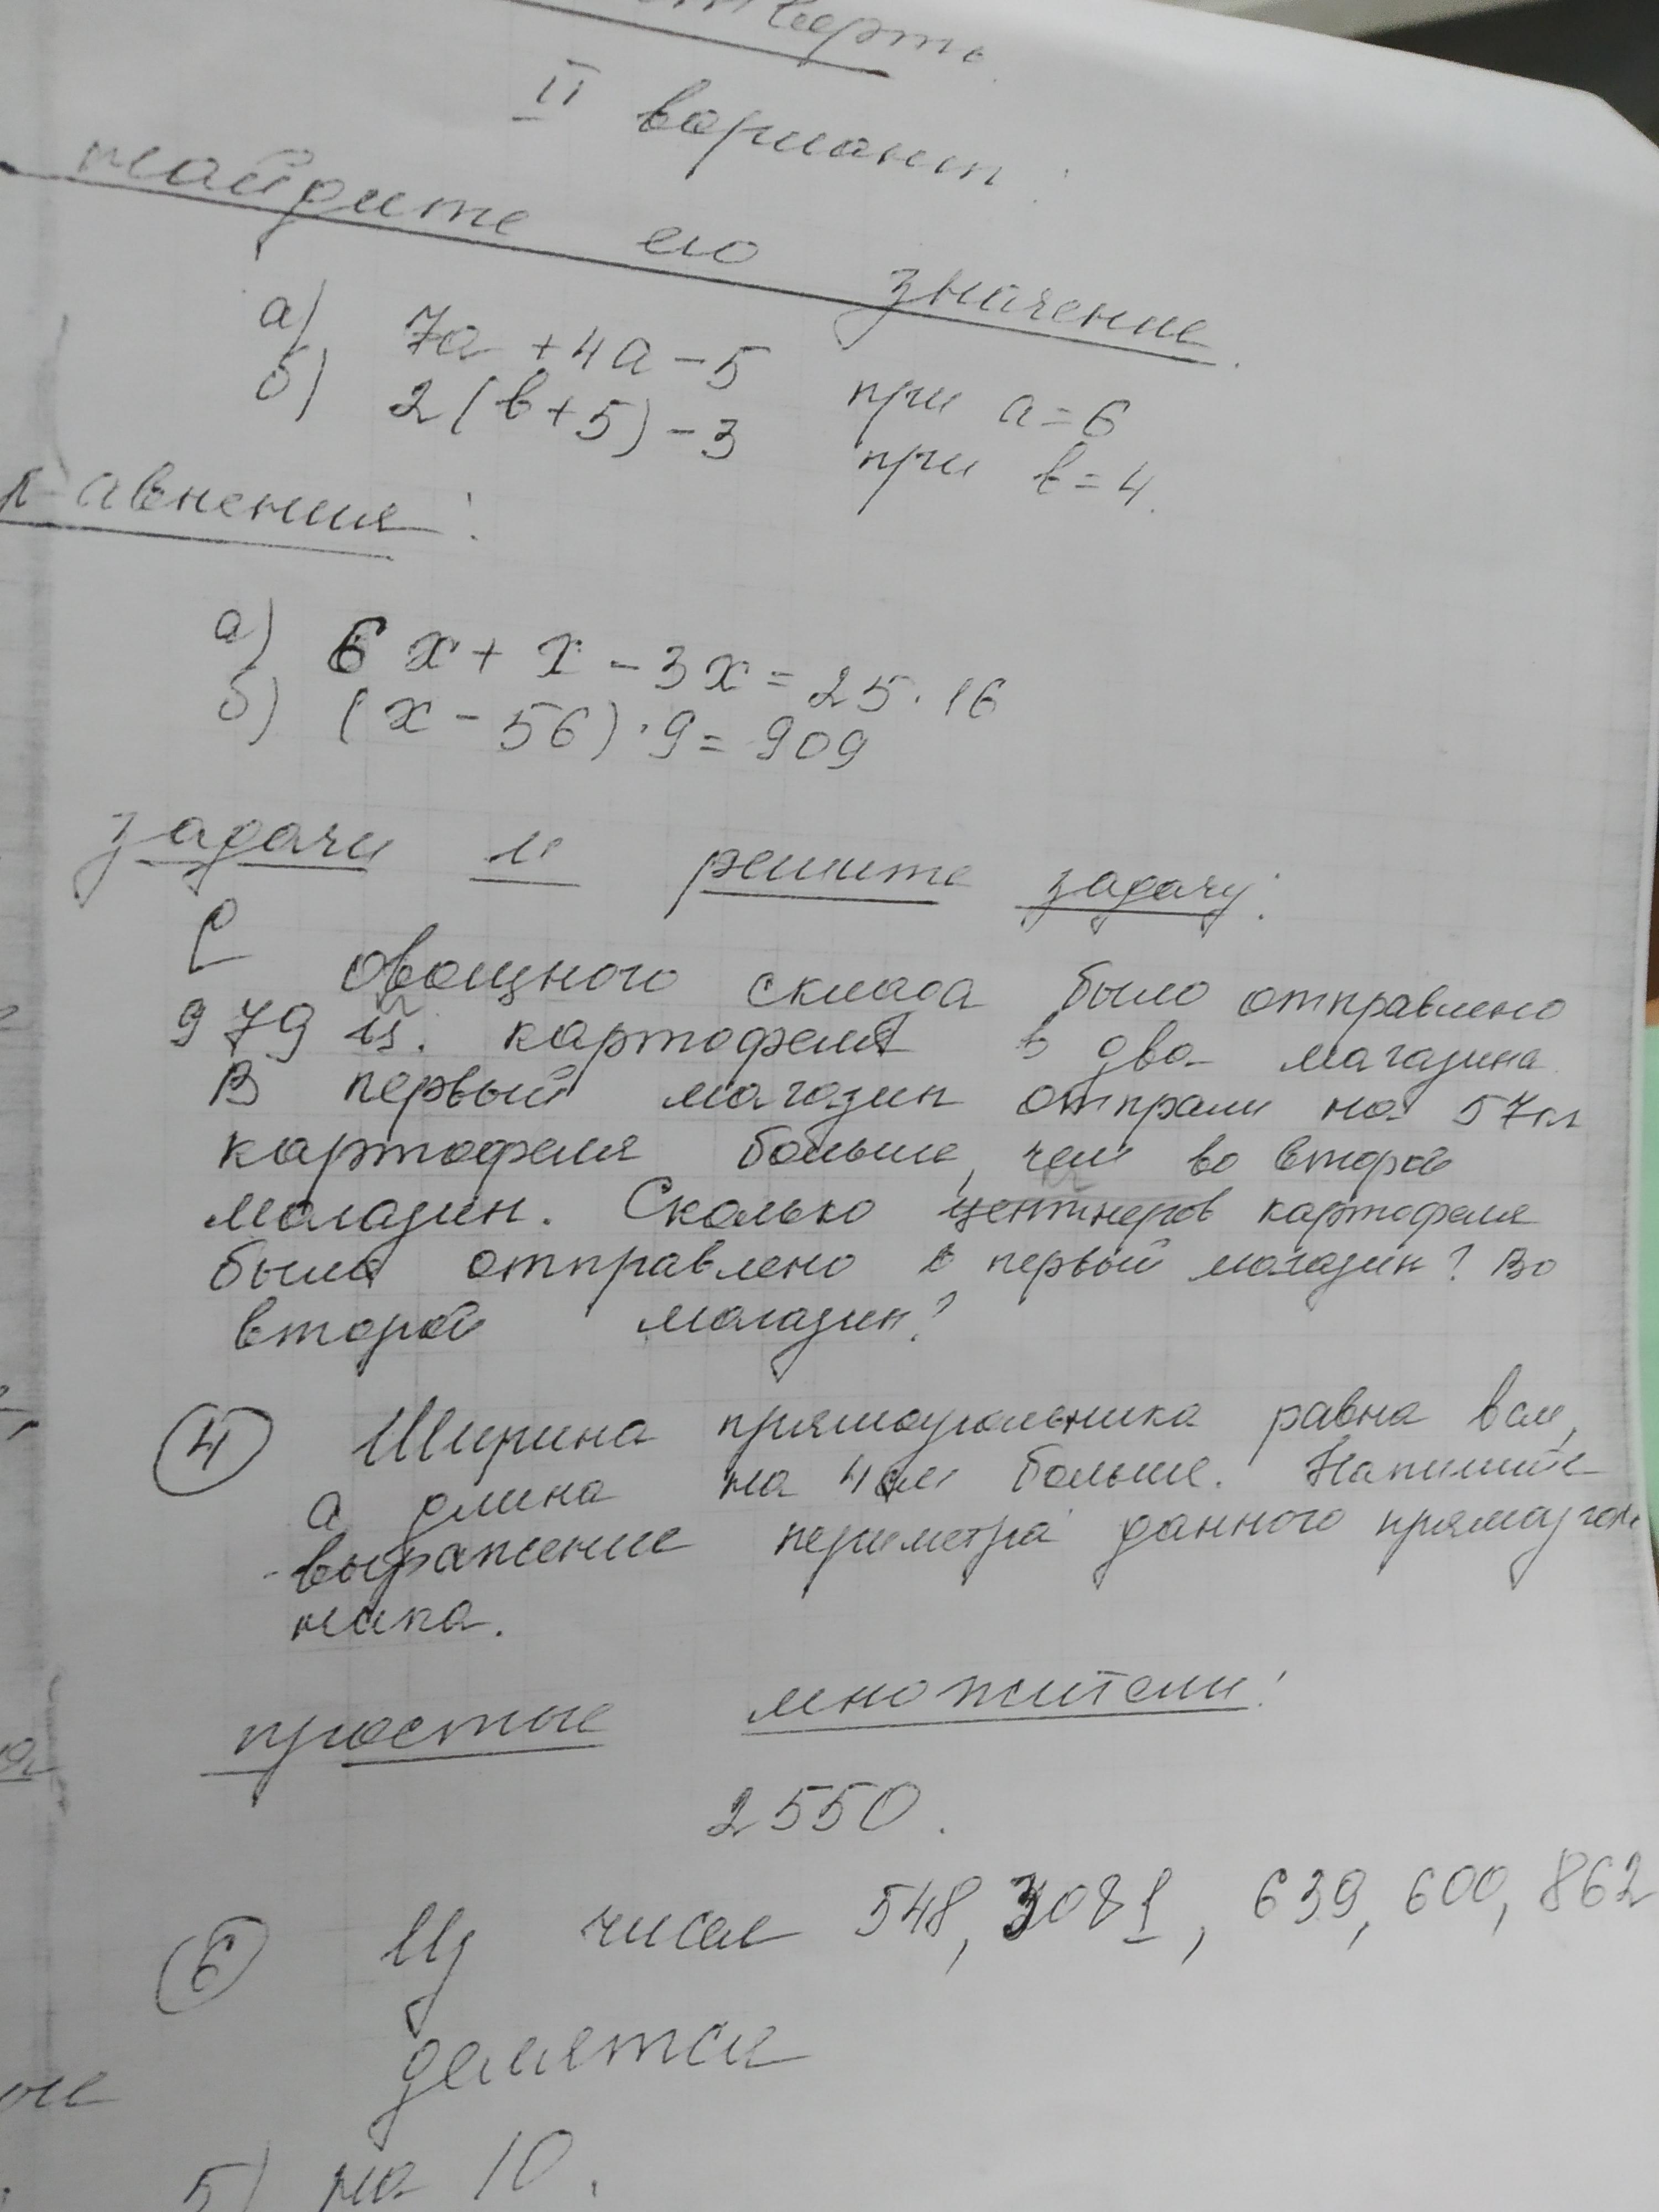 II вариант:
найдите его значение.
а) 7а + 4а - 5 при а = 6
б) 2(в + 5) - 3 при в = 4.
авнения:
а) 6х + х - 3х = 25 · 16
б) (х - 56) · 9 = 909
задачи и решите задачу:
С овощного склада было отправлено
979 ц. картофеля в два магазина
В первый магазин отпрали на 57
картофеля больше, чем во второй
магазин. Сколько центнеров картофеля
было отправлено в первый магазин? Во
второй магазин?
4 Ширина прямоугольника равна в см,
а длина на 4 см больше. Напишите
выражение периметра данного прямоуголь
ника.
простые множители:
2550.
6 Из чисел 548, 3081, 639, 600, 862
делятся
б) на 10.